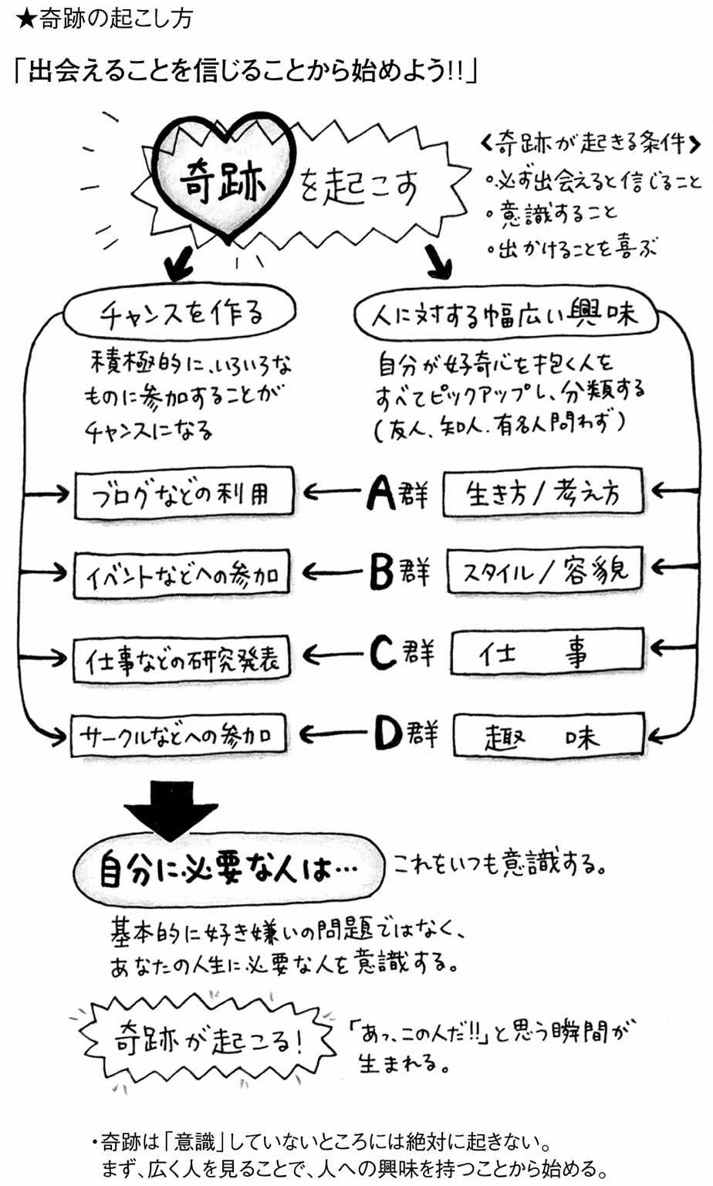 ★奇跡の起こし方
「出会えることを信じることから始めよう!!」
奇跡を起こす
〈奇跡が起きる条件〉
○必ず出会えると信じること
○意識すること
○出かけることを喜ぶ
チャンスを作る
積極的に、いろいろな
ものに参加することが
チャンスになる
人に対する幅広い興味
自分が好奇心を抱く人を
すべてピックアップし、分類する
(友人、知人、有名人問わず)
ブログなどの利用 ← A群 生き方/考え方
イベントなどへの参加 ← B群 スタイル/容貌
仕事などの研究発表 ← C群 仕事
サークルなどへの参加 ← D群 趣味
自分に必要な人は…
これをいつも意識する。
基本的に好き嫌いの問題ではなく、
あなたの人生に必要な人を意識する。
奇跡が起こる!
「あっ、この人だ!!」と思う瞬間が
生まれる。
・奇跡は「意識」していないところには絶対に起きない。
まず、広く人を見ることで、人への興味を持つことから始める。